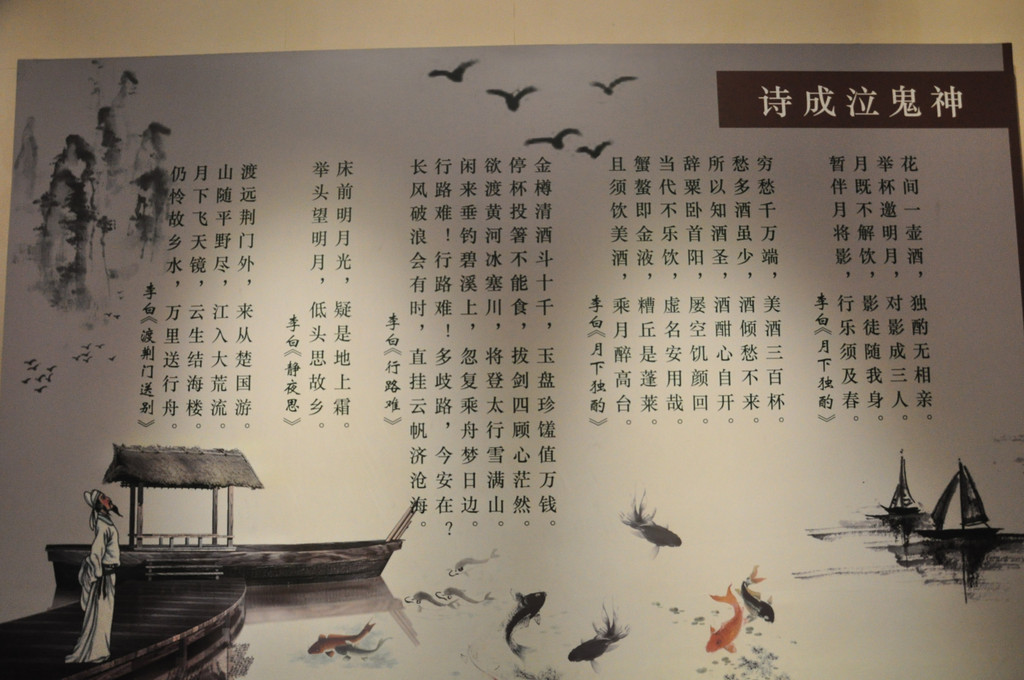 诗成泣鬼神
花间一壶酒，独酌无相亲。
举杯邀明月，对影成三人。
月既不解饮，影徒随我身。
暂伴月将影，行乐须及春。
李白《月下独酌》
穷愁千万端，美酒三百杯。
愁多酒虽少，酒倾愁不来。
所以知酒圣，酒酣心自开。
辞粟卧首阳，屡空饥颜回。
当代不乐饮，虚名安用哉。
蟹螯即金液，糟丘是蓬莱。
且须饮美酒，乘月醉高台。
李白《月下独酌》
金樽清酒斗十千，玉盘珍馐值万钱。
停杯投箸不能食，拔剑四顾心茫然。
欲渡黄河冰塞川，将登太行雪满山。
闲来垂钓碧溪上，忽复乘舟梦日边。
行路难！行路难！多歧路，今安在？
长风破浪会有时，直挂云帆济沧海。
李白《行路难》
床前明月光，疑是地上霜。
举头望明月，低头思故乡。
李白《静夜思》
渡远荆门外，来从楚国游。
山随平野尽，江入大荒流。
月下飞天镜，云生结海楼。
仍怜故乡水，万里送行舟。
李白《渡荆门送别》